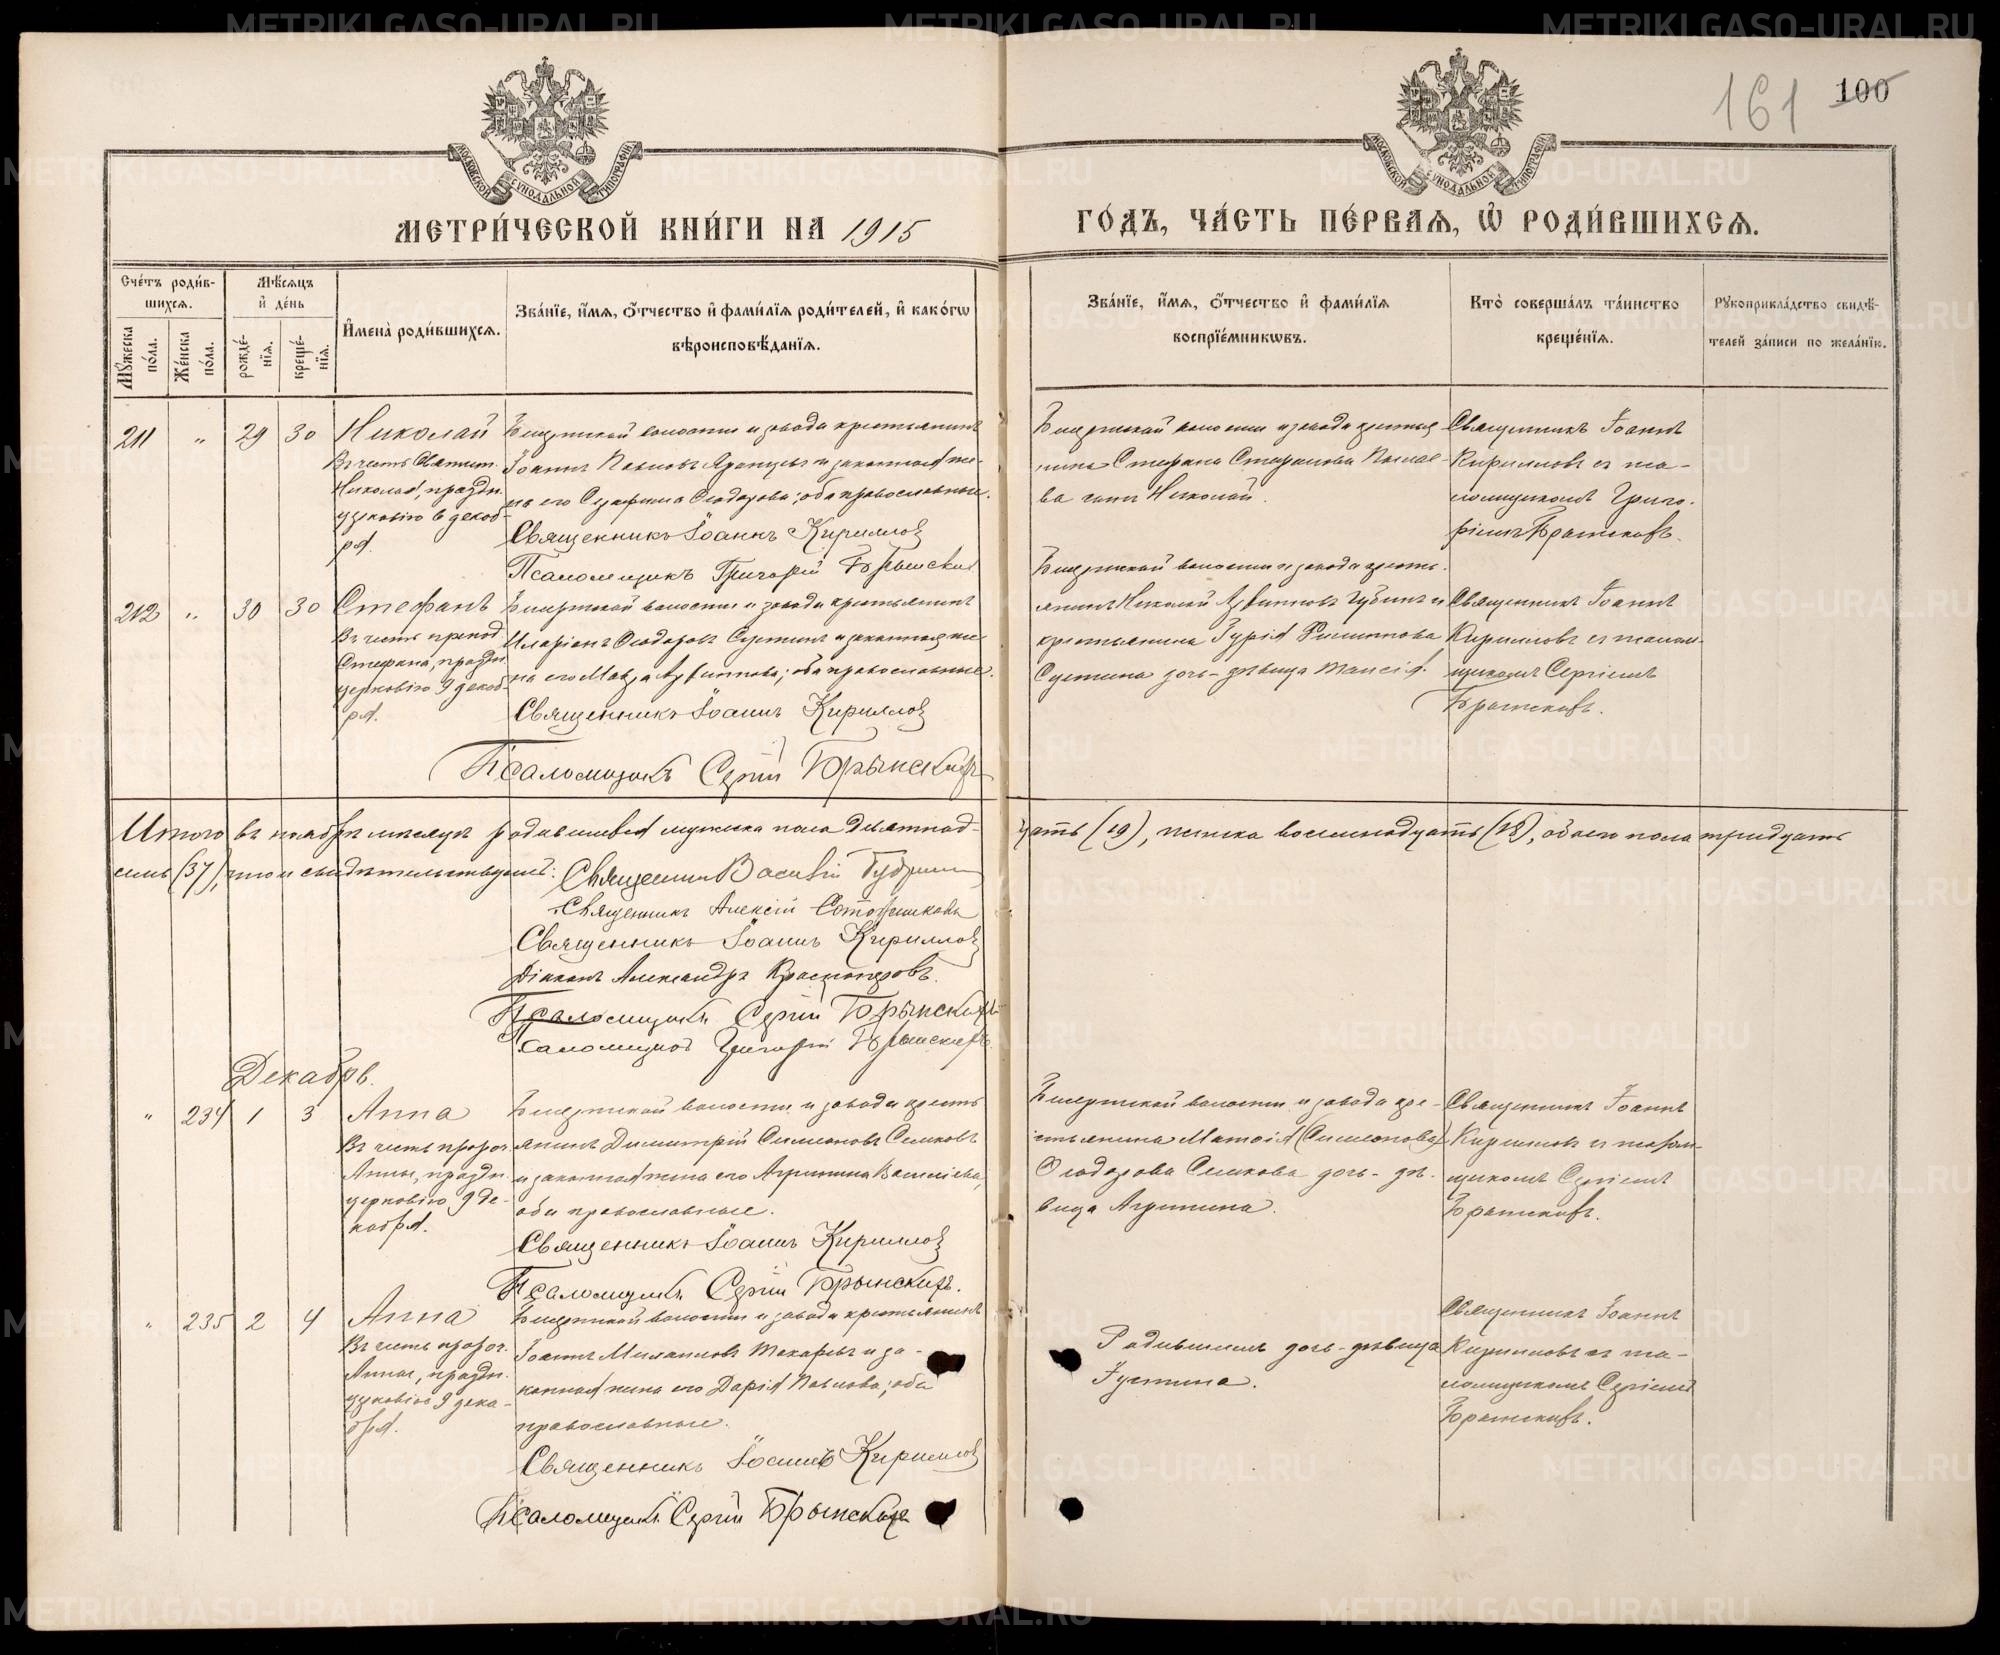 161 100
МЕТРИ́ЧЕСКОЙ КНИ́ГИ НА 1915 ГО́ДЪ, ЧА́СТЬ ПЕ́РВАЯ, Ѡ РОДИ́ВШИХСЯ.
Сче́тъ роди́в-
шихся.
Мѣ́сяцъ
и҆ де́нь
Мꙋ́жеска
по́ла.
Же́нска
по́ла.
рожде́-
нїя.
креще́-
нїя.
И҆мена̀ роди́вшихся.
Зва́нїе, и҆́мя, ѻ҆́тчество и҆ фами́лїя роди́телей, и҆ како́гѡ
вѣроисповѣ́данїя.
Зва́нїе, и҆́мя, ѻ҆́тчество и҆ фами́лїя
воспрїе́мникѡвъ.
Кто̀ соверша́лъ та́инство
креще́нїя.
Рꙋкоприкла́дство свидѣ́-
телей за́писи по жела́нїю.
211 " 29 30 Николай
Въ честь Святит.
Николая, праздн.
церковію 6 декаб-
ря.
Бисертской волости и завода крестьянинъ
Іоаннъ Павловъ и законная же-
на его Серафима Ѳеодорова; оба православные.
Священникъ Іоаннъ Кирилловъ
Псаломщикъ Григорій Брынскихъ
Бисертской волости и завода крестья-
нина Стефана Стефанова
ва сынъ Николай.
Священникъ Іоаннъ
Кирилловъ съ пса-
ломщикомъ Григо-
ріемъ Брынскихъ.
212 " 30 30 Стефанъ
Въ честь препод.
Стефана, праздн.
церковію 9 декаб-
ря.
Бисертской волости и завода крестьянинъ
Иларіонъ Ѳеодоровъ Сустинъ и законная же-
на его Мавра Архиппова; оба православные.
Священникъ Іоаннъ Кирилловъ
Псаломщикъ Сергій Брынскихъ
Бисертской волости и завода кресть-
янинъ Николай Архипповъ Губинъ и
крестьянина Гурія Филиппова
Сустина дочь-дѣвица Таисія.
Священникъ Іоаннъ
Кирилловъ съ псалом-
щикомъ Сергіемъ
Брынскихъ.
Итого въ ноябрѣ мѣсяцѣ родившихся мужеска пола девятнад-
цать (19), женска восемнадцать (18), обоего пола тридцать
семь (37), въ чемъ и свидѣтельствуемъ: Священникъ Василій
Священникъ Алексій
Священникъ Іоаннъ Кирилловъ
Діаконъ Александръ Красноперовъ.
Псаломщикъ Сергій Брынскихъ
Псаломщикъ Григорій Брынскихъ
Декабрь.
" 234 1 3 Анна
Въ честь пророч.
Анны, праздн.
церковію 9 де-
кабря.
Бисертской волости и завода кресть-
янинъ Димитрій Симеоновъ Сысковъ
и законная жена его Агриппина Васильева,
оба православные.
Священникъ Іоаннъ Кирилловъ
Псаломщикъ Сергій Брынскихъ.
Бисертской волости и завода кре-
стьянина Матѳія (Симеонова)
Ѳеодорова Сыскова дочь-дѣ-
вица Агриппина.
Священникъ Іоаннъ
Кирилловъ съ псалом-
щикомъ Сергіемъ
Брынскихъ.
" 235 2 4 Анна
Въ честь пророч.
Анны, праздн.
церковію 9 дека-
бря.
Бисертской волости и завода крестьянинъ
Іоаннъ Михаиловъ Токаревъ и за-
конная жена его Дарія Павлова; оба
православные.
Священникъ Іоаннъ Кирилловъ
Псаломщикъ Сергій Брынскихъ
Родившихъ дочь-дѣвица
Іустина.
Священникъ Іоаннъ
Кирилловъ съ пса-
ломщикомъ Сергіемъ
Брынскихъ.
METRIKI.GASO-URAL.RU